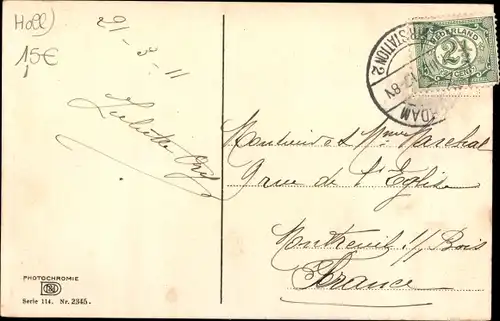 Holl)
15€
29/-3-11
NEDERLAND
2½
CENT
STATION 2
DAM
Monsieur et Mme Marechal
9 rue de l'Eglise
Montreuil s/ Bois
France
PHOTOCHROMIE
Serie 114. Nr. 2345.